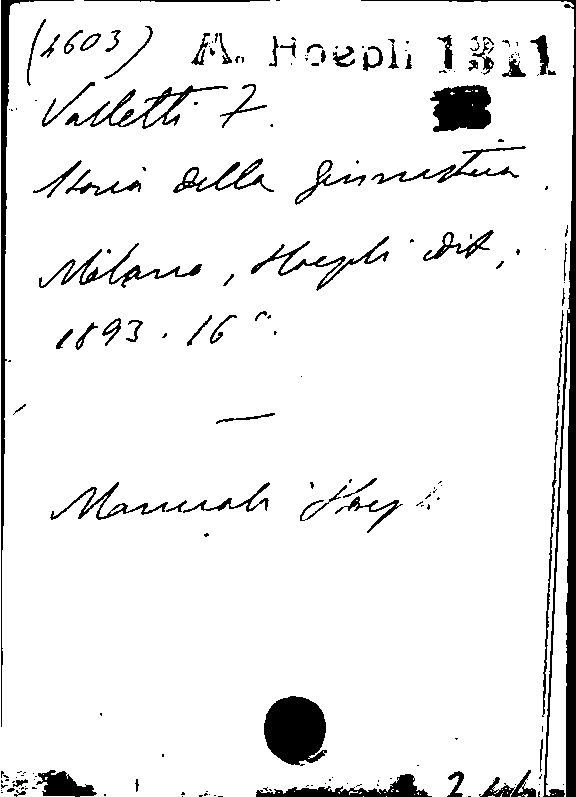 (4603) M. Hoepli 1311
Valletti F.
Storia della ginnastica.
Milano, Hoepli edit,.
1893. 16°.
Manuali Hoepli
2